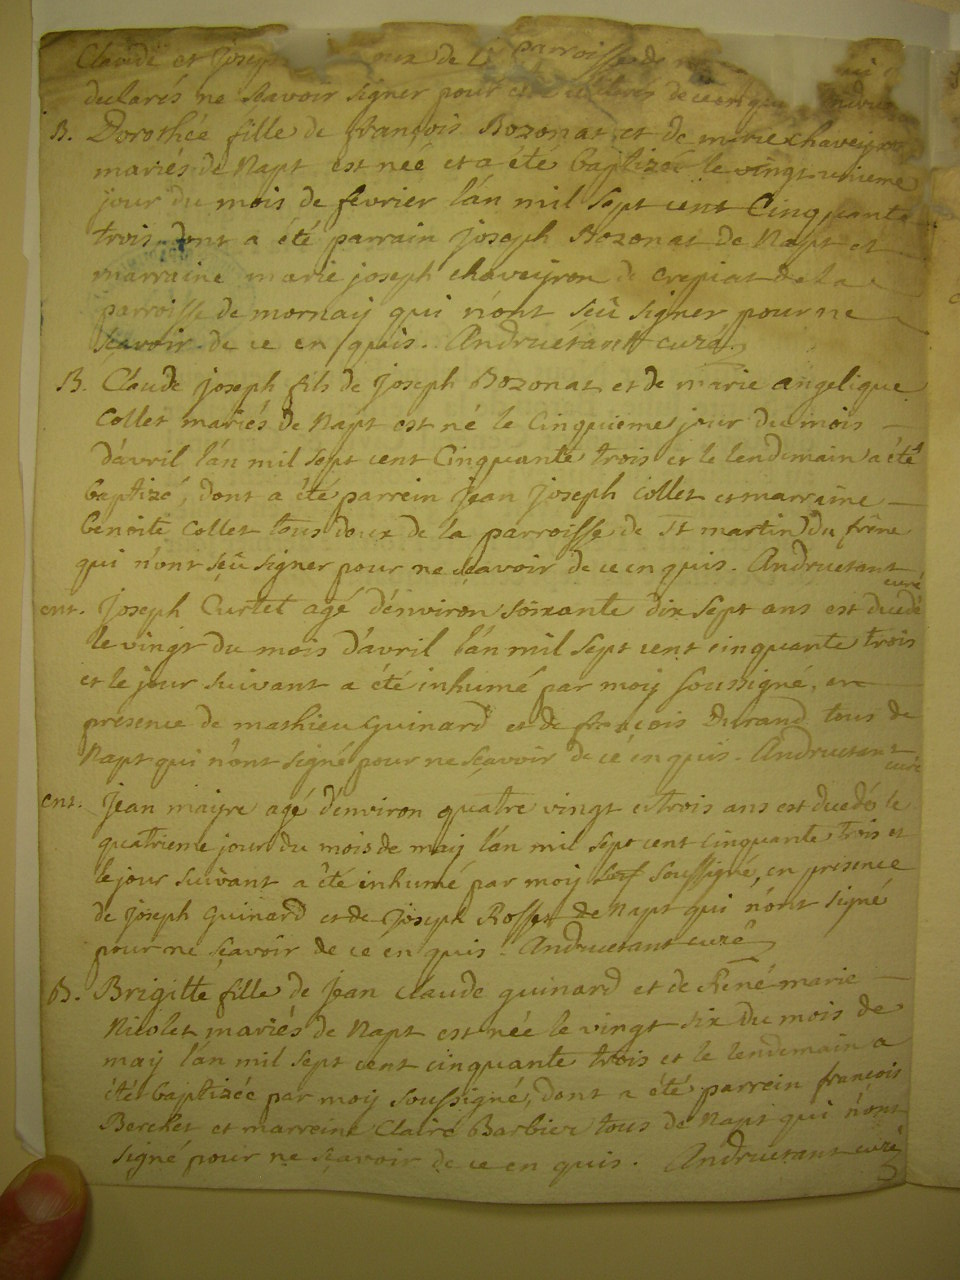 Claude et Joseph de la parroisse de
declarés ne sçavoir signer pour
B. Dorothée fille de françois Bozonat et de marie chaveyron
mariés de Napt est néé et a été baptizée le vingt unieme
jour du mois de fevrier l'an mil sept cent Cinquante
trois dont a été parrain joseph Bozonat de Napt et
marraine marie joseph chaveyron de crepiat de la
parroisse de mornay qui n'ont seû signer pour ne
sçavoir de ce en quis. Andruetant curé
B. Claude joseph fils de joseph Bozonat et de marie angelique
Collet mariés de Napt est né le Cinquieme jour du mois
d'avril l'an mil sept cent Cinquante trois et le lendemain a été
baptizé, dont a été parrein jean joseph collet et marraine
benoite collet tous deux de la parroisse de St martin du frêne
qui n'ont seû signer pour ne sçavoir de ce en quis. Andruetant
curé
ent. joseph Curtet agé d'environ soixante dix sept ans est decedé
le vingt du mois d'avril l'an mil sept cent cinquante trois
et le jour suivant a été inhumé par moy soussigné, en
presence de mathieu guinard et de françois Durand tous de
Napt qui n'ont signé pour ne sçavoir de ce en quis. Andruetant
curé
ent. jean maigre agé d'environ quatre vingt et trois ans est decedé le
quatrieme jour du mois de may l'an mil sept cent cinquante trois et
le jour suivant a été inhumé par moy soussigné, en presence
de joseph guinard et de joseph Rosset de Napt qui n'ont signé
pour ne sçavoir de ce en quis. Andruetant curé
B. Brigitte fille de jean claude guinard et de René marie
Nicolet mariés de Napt est née le vingt six du mois de
may l'an mil sept cent cinquante trois et le lendemain a
été baptizée par moy soussigné, dont a été parrein françois
Berchet et marreine Claire Barbier tous de Napt qui n'ont
signé pour ne sçavoir de ce en quis. Andruetant curé